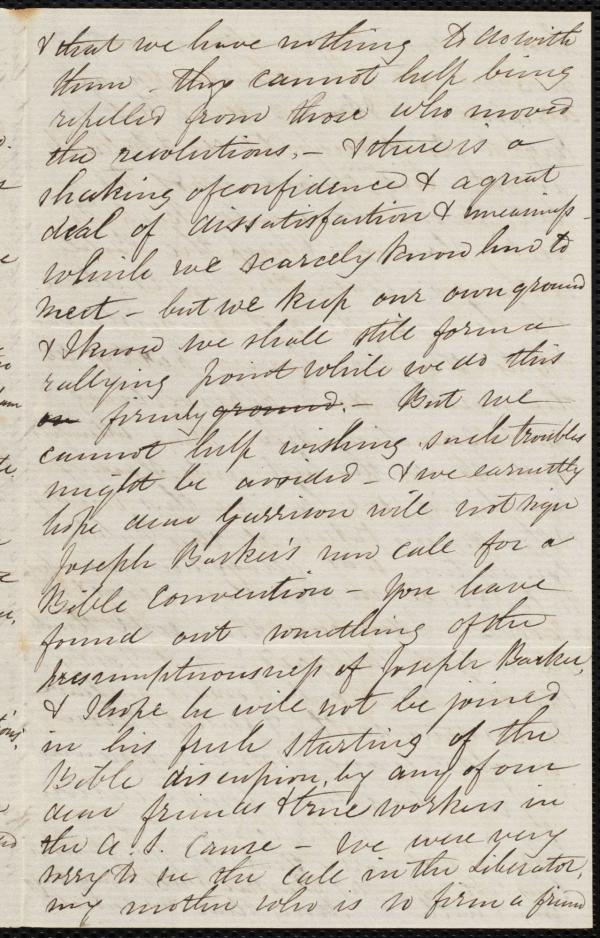 & that we have nothing to do with
them - they cannot help being
repelled from those who moved
the revolutions, - & there is a
shaking of confidence & a great
deal of dissatisfaction & uneasiness -
which we scarcely know how to
meet - but we keep our own ground
& I know we shall still form a
rallying point while we do this
on firmly ground. - But we
cannot help wishing such troubles
might be avoided - & we earnestly
hope dear Garrison will not sign
Joseph Barker's new call for a
Bible Convention - you have
found out something of the
presumptuousness of Joseph Barker,
& I hope he will not be joined
in his fresh starting of the
Bible discussion, by any of our
dear friends & true workers in
the A. S. Cause - We were very
sorry to see the Call in the Liberator,
my mother who is so firm a friend